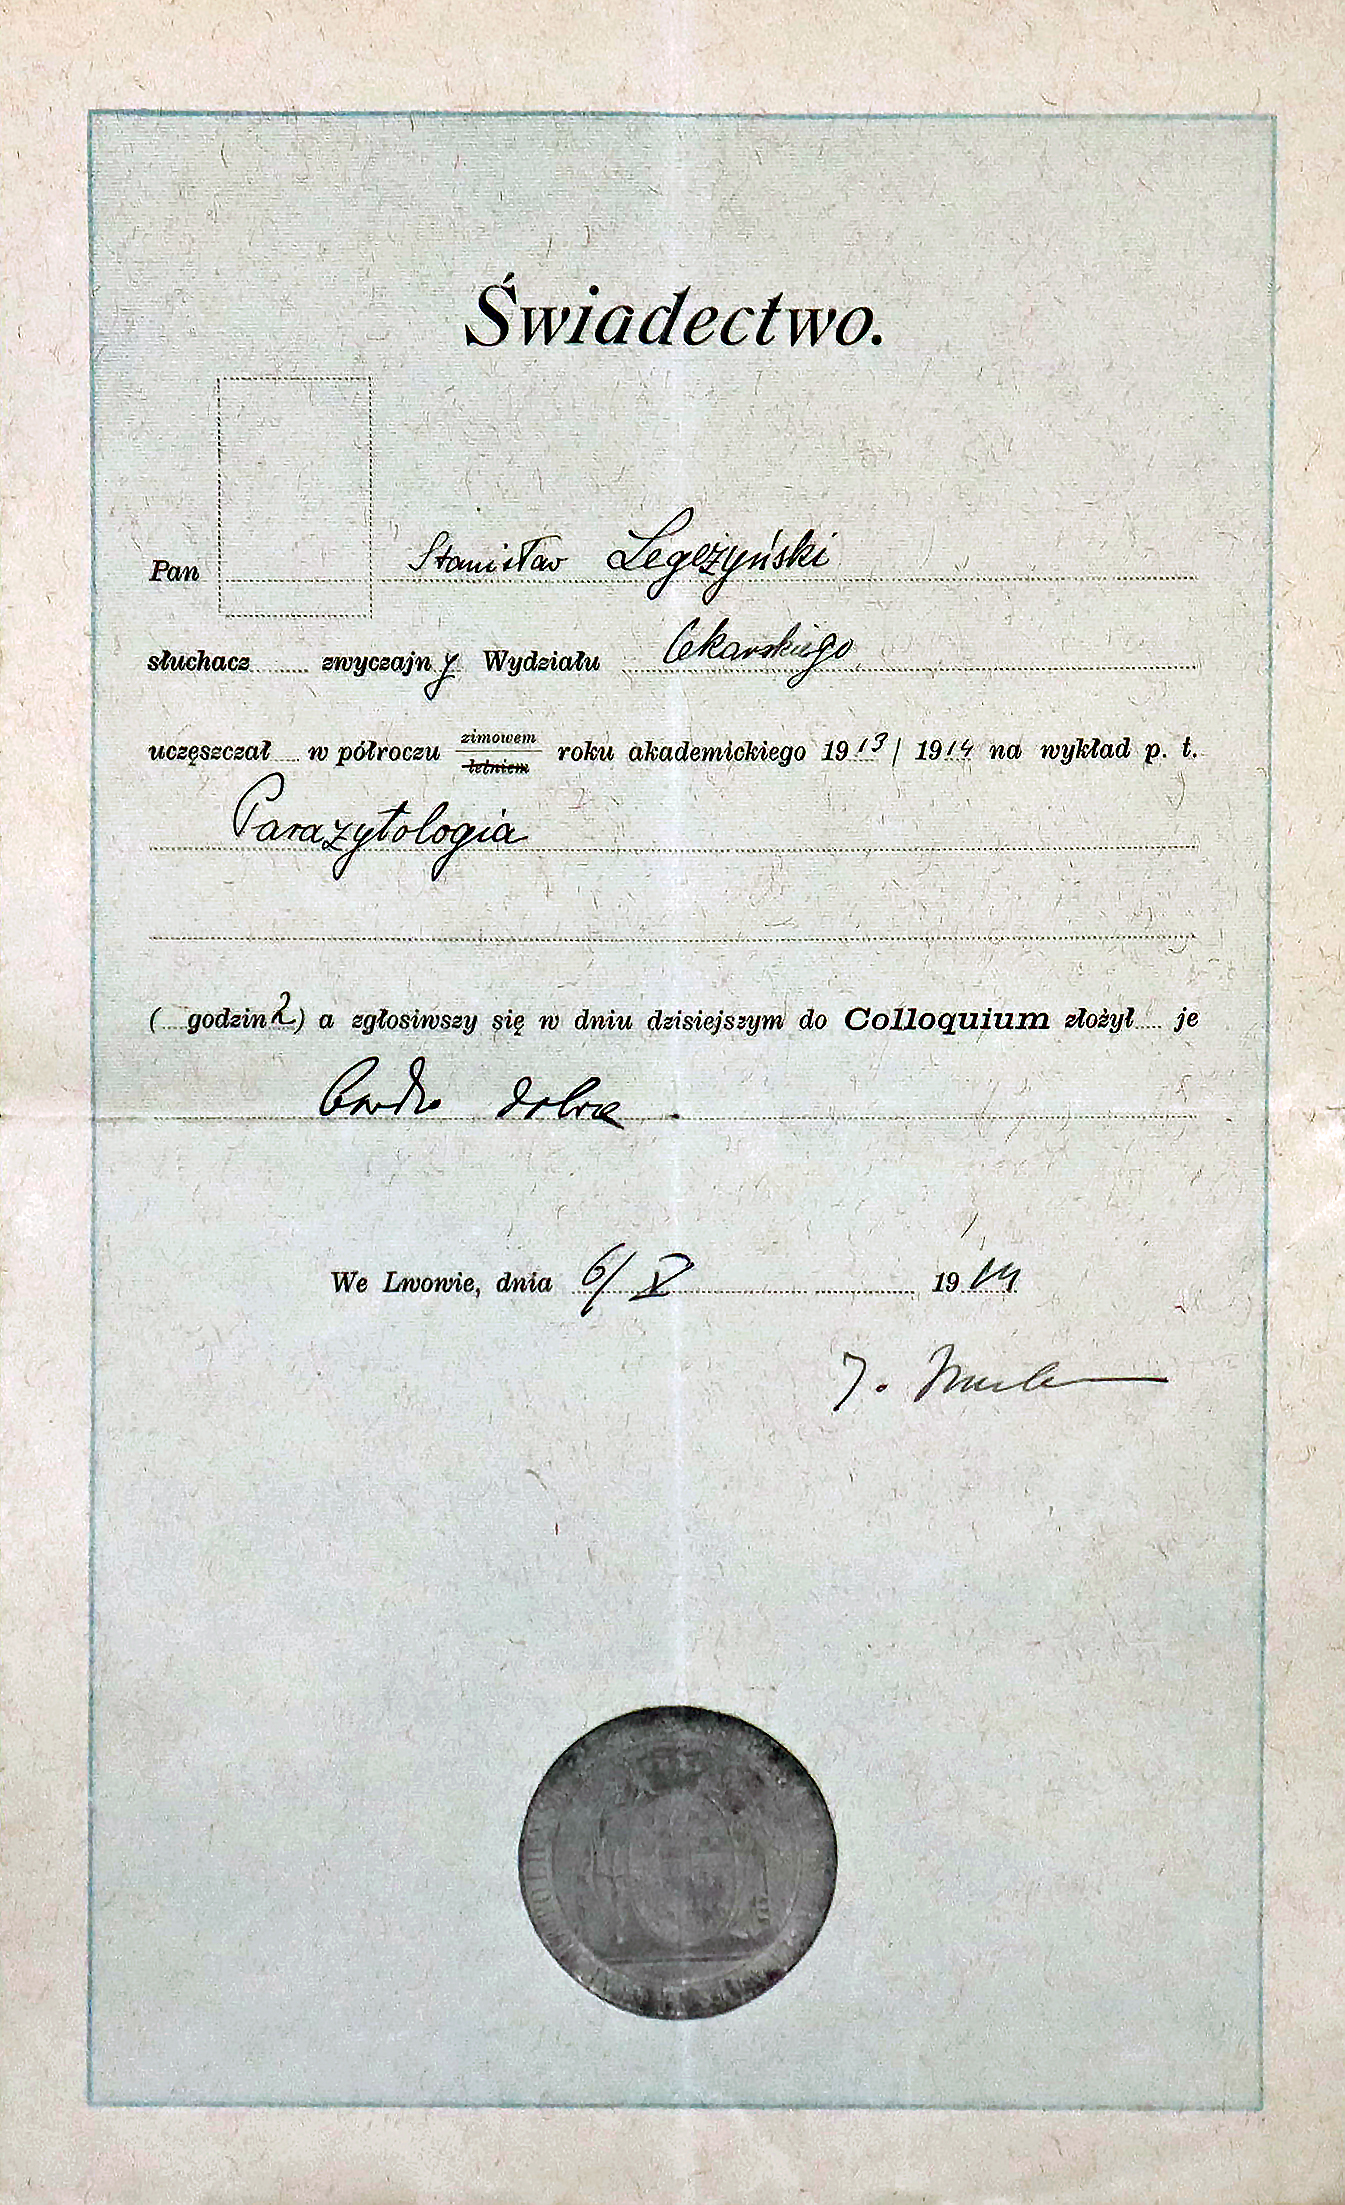 Świadectwo.
Pan Stanisław Legeżyński
słuchacz zwyczajny Wydziału lekarskiego
uczęszczał w półroczu zimowem letniem roku akademickiego 1913/1914 na wykład p. t.
Parazytologia
(godzin 2) a zgłosiwszy się w dniu dzisiejszym do Colloquium złożył je
bardzo dobrze.
We Lwowie, dnia 6/V 1914
J.